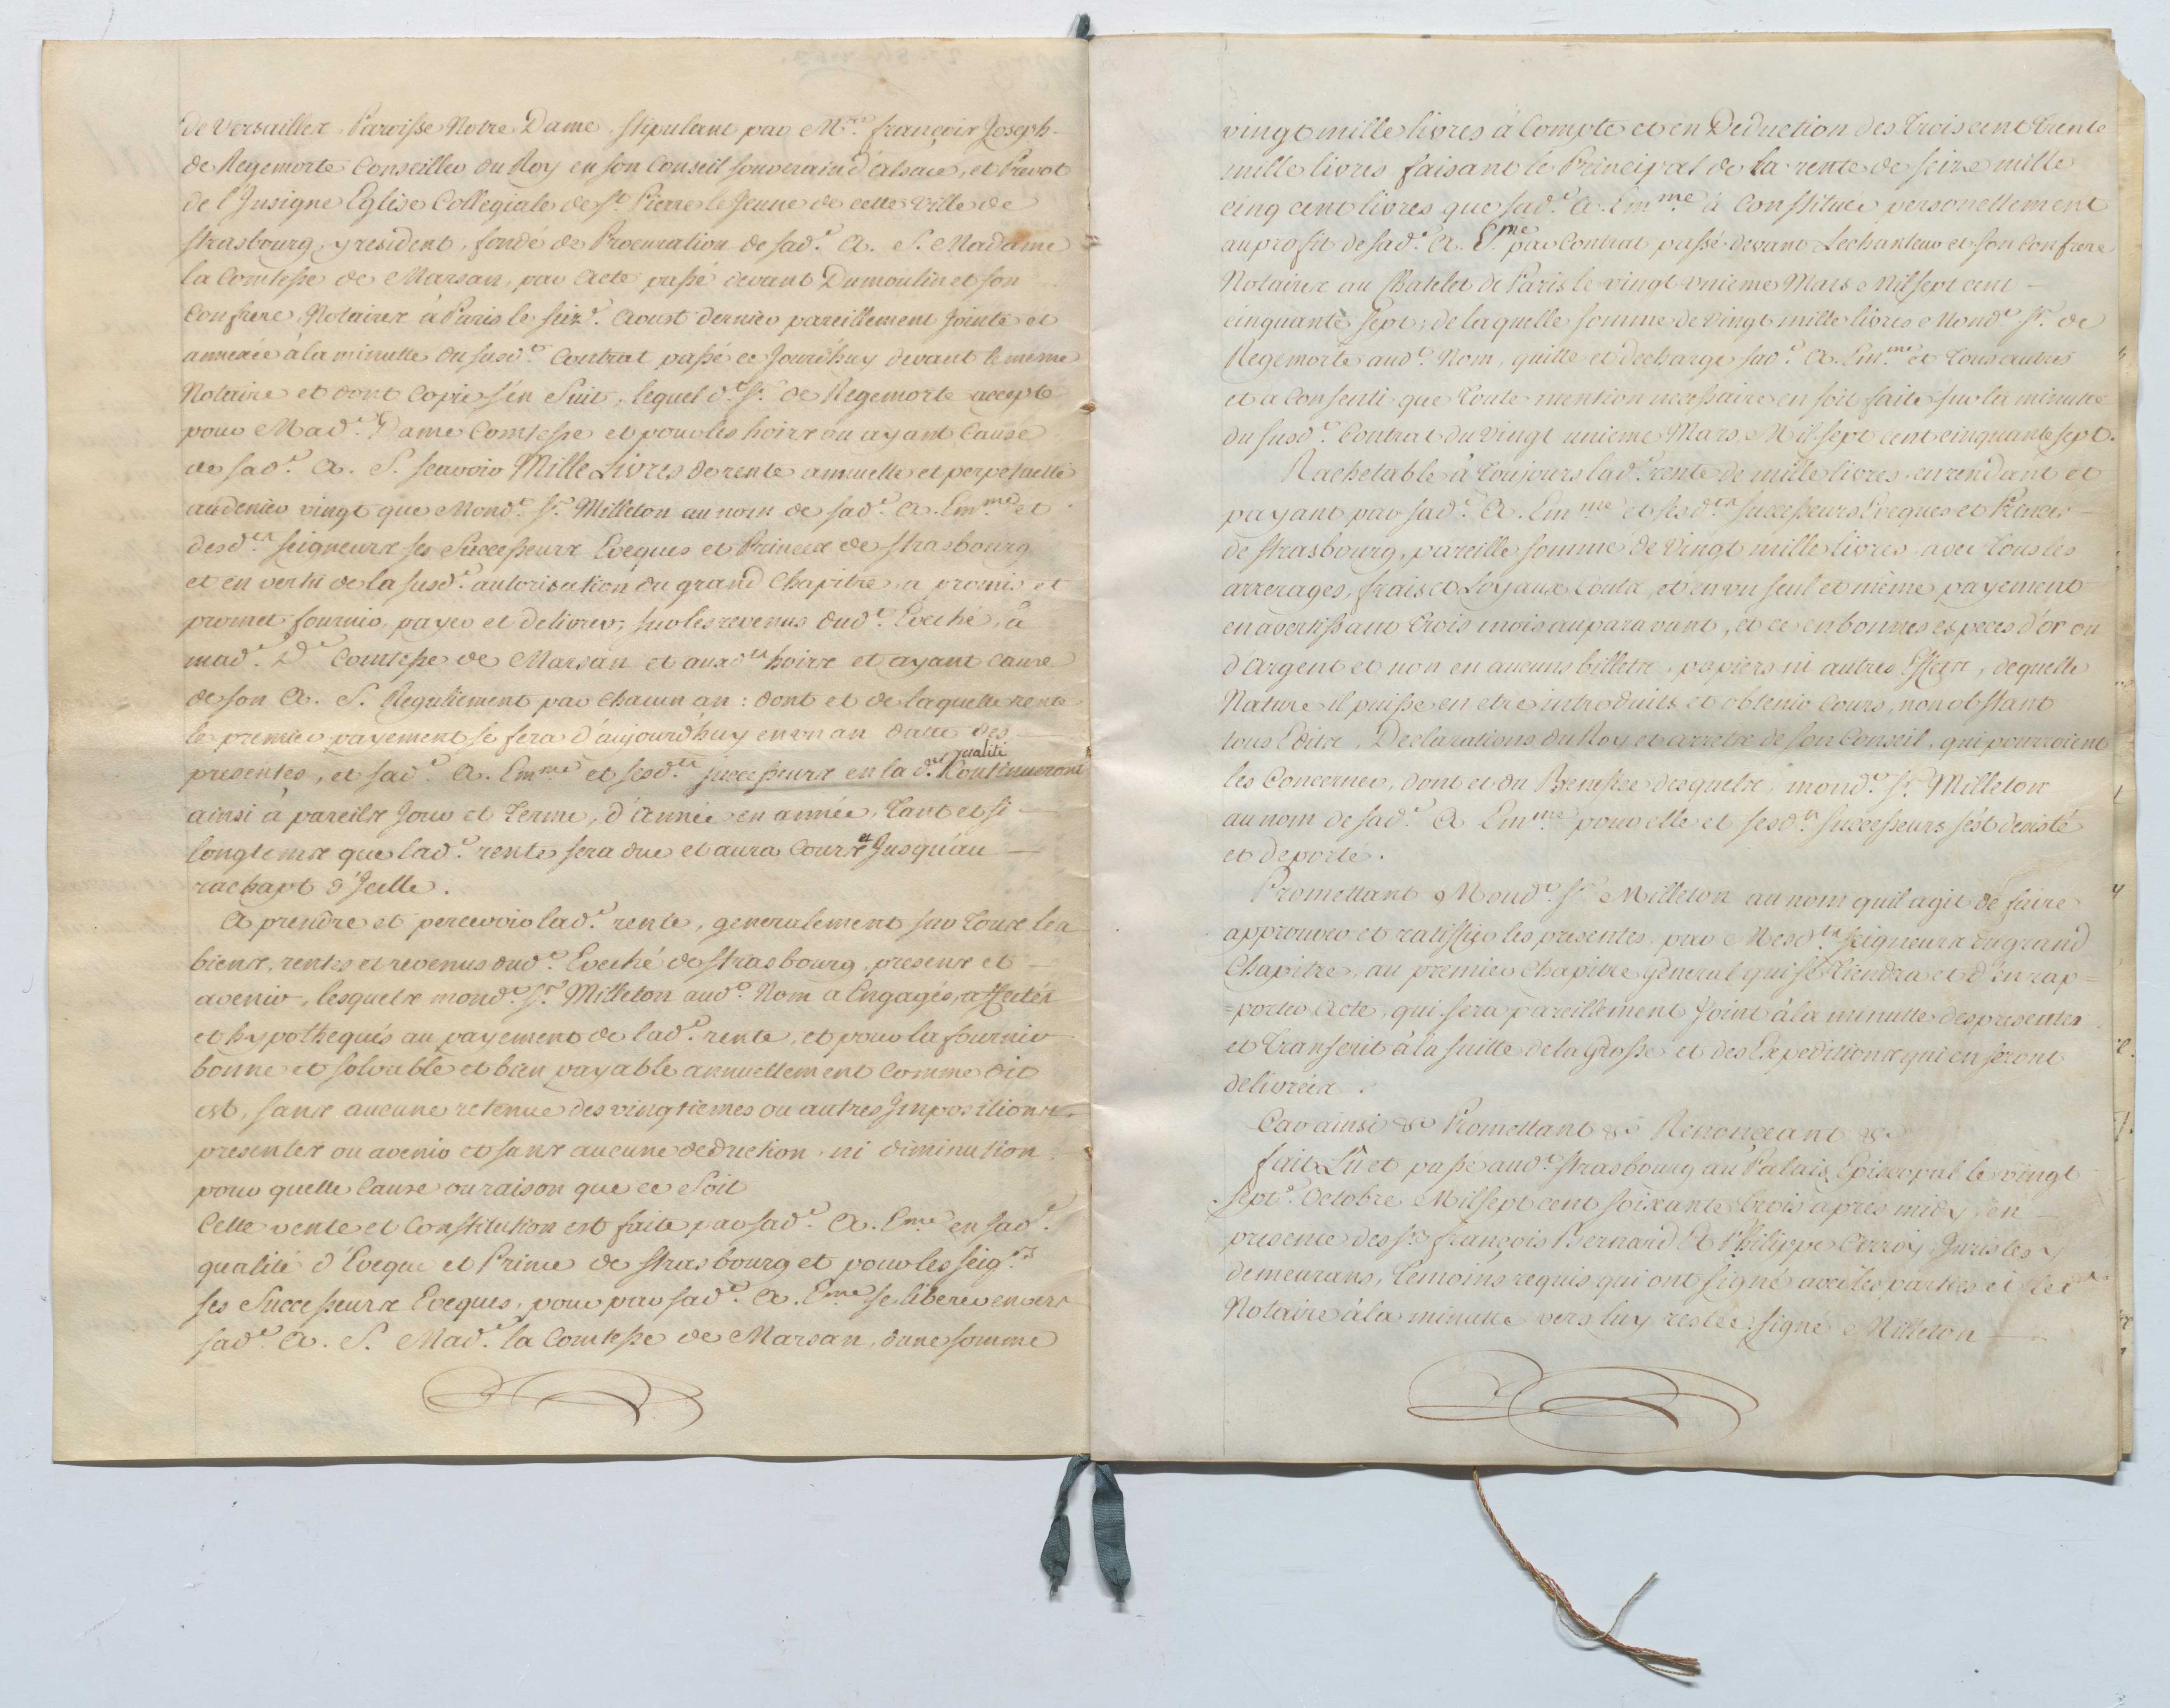 de Versailles, Paroisse Notre Dame, stipulant par Mre. françois Joseph-
de Regemorte Conseiller du Roy en son Conseil souverain d'alsace, et Prevot
de l'Insigne Eglise Collegiale de St. Pierre le Jeune de cette Ville de
strasbourg, y resident, fondé de Procuration de sade. A. S. Madame
la Comtesse de Marsan, par Acte passé devant Dumoulin et son
Confrere Notaires à Paris le Aoust dernier pareillement Jointe et
annexée à la minutte du susdt. Contrat passé ce Jourd'huy devant le meme
Notaire et dont Copie s'en Suit, lequel dt. Sr. de Regemorte accepte
pour Made. Dame Comtesse et pour les hoirs ou ayant Cause
de sade. A. S. scavoir Mille Livres de rente annuelle et perpetuelle
au denier vingt que Mondt. Sr. Milleton au nom de sade. A. Emme. et
desdts. seigneurs ses Successeurs Eveques et Princes de strasbourg
et en vertu de la susde. autorisation du grand Chapitre, a promis et
promet fournir, payer et delivrer, sur les revenus dudt. Eveché, à
made. De. Comtesse de Marsan et auxdts. hoirs et ayant cause
de son A. S. Regulierement par Chacun an: dont et de laquelle rente
le premier payement se fera d'aujourd'huy en un an datte des
presentes, et sade. A. Emme. et sesdts. successeurs en lade. qualité Continueront
ainsi à pareils Jour et Terme, d'Année en année, Tant et si
longtems que lade. rente sera due et aura Cours et Jusqu'au
rachapt d'Icelle.
A prendre et percevoir lade. rente, generalement sur Tous les
biens, rentes et revenus dudt. Eveché de strasbourg, presens et
avenir, lesquels mondt. Sr. Milleton audt. Nom a Engagés, affectés
et hypothequés au payement de lade. rente, et pour la fournir
bonne et solvable et bien payable annuellement Comme dit
est, sans aucune retenue des vingtiemes ou autres Impositions
presentes ou avenir et sans aucune deduction, ni diminution
pour quelle Cause ou raison que ce Soit
Cette vente et Constitution est faite par sade. A. Eme. en sade.
qualité d'Eveque et Prince de strasbourg et pour les seigrs.
ses Successeurs Eveques, pour par sade. A. Eme. se liberer envers
sade. A. S. Made. la Comtesse de Marsan, dune somme
vingt mille livres à Compte et en Deduction des Trois cent Trente
mille livres faisant le Principal de la rente de seize mille
cinq cent livres que sade. A. Emme. à Constituée personellement
au profit de sade. A. Sme. par Contrat passé devant Lechanteur et son Confrere
Notaires au Chatelet de Paris le vingt unieme Mars Mil sept cent
cinquante Sept, de laquelle somme de Vingt mille livres Mondt. Sr. de
Regemorte audt. Nom, quitte et decharge sade. A. Emme. et Tous autres
et a Consenti que Toute mention necessaire en soit faite sur la minutte
du susdt. Contrat du Vingt unieme Mars, Mil sept cent cinquante sept.
Rachetable à Toujours lade. rente de mille livres, en rendant et
payant par sade. A. Emme. et sesdts. successeurs Eveques et Princes
de strasbourg, pareille somme de Vingt mille livres avec Tous les
arrerages, frais et Loyaux Couts, et en un seul et même payement
en avertissant Trois mois auparavant, et ce en bonnes especes d'or ou
d'Argent et non en aucuns billets, papiers ni autres Effets, de quelle
Nature il puisse en etre introduits et obtenir Cours, nonobstant
tous Edits, Declarations du Roy et arrets de son Conseil, qui pourroient
les Concerner, dont et du Benefice desquels, mondt. Sr. Milleton
au nom de sade. A Emme. pour elle et sesdts. Successeurs s'est desisté
et deporté.
Promettant Mondt. Sr. Milleton au nom quil agit de faire
approuver et ratiffier les presentes, par Mesdts. seigneurs du grand
Chapitre, au premier Chapitre general qui se Tiendra et d'en rap=
=porter Acte, qui sera pareillement Joint à la minutte des presentes
et Transcrit à la suitte de la Grosse et des Expeditions qui en seront
delivrées.
Car ainsi &a Promettant &a Renonceant &a
fait Lû et passé audt. strasbourg au Palais Episcopal le vingt
Septe. Octobre Mil sept cent soixante trois apres midy, en
presence des Srs. françois Bernard Et Philippe Arroy Juristes y
demeurans, Temoins requis qui ont signé avec les parties et ledt.
Notaire à la minutte vers luy restée. signé Milleton